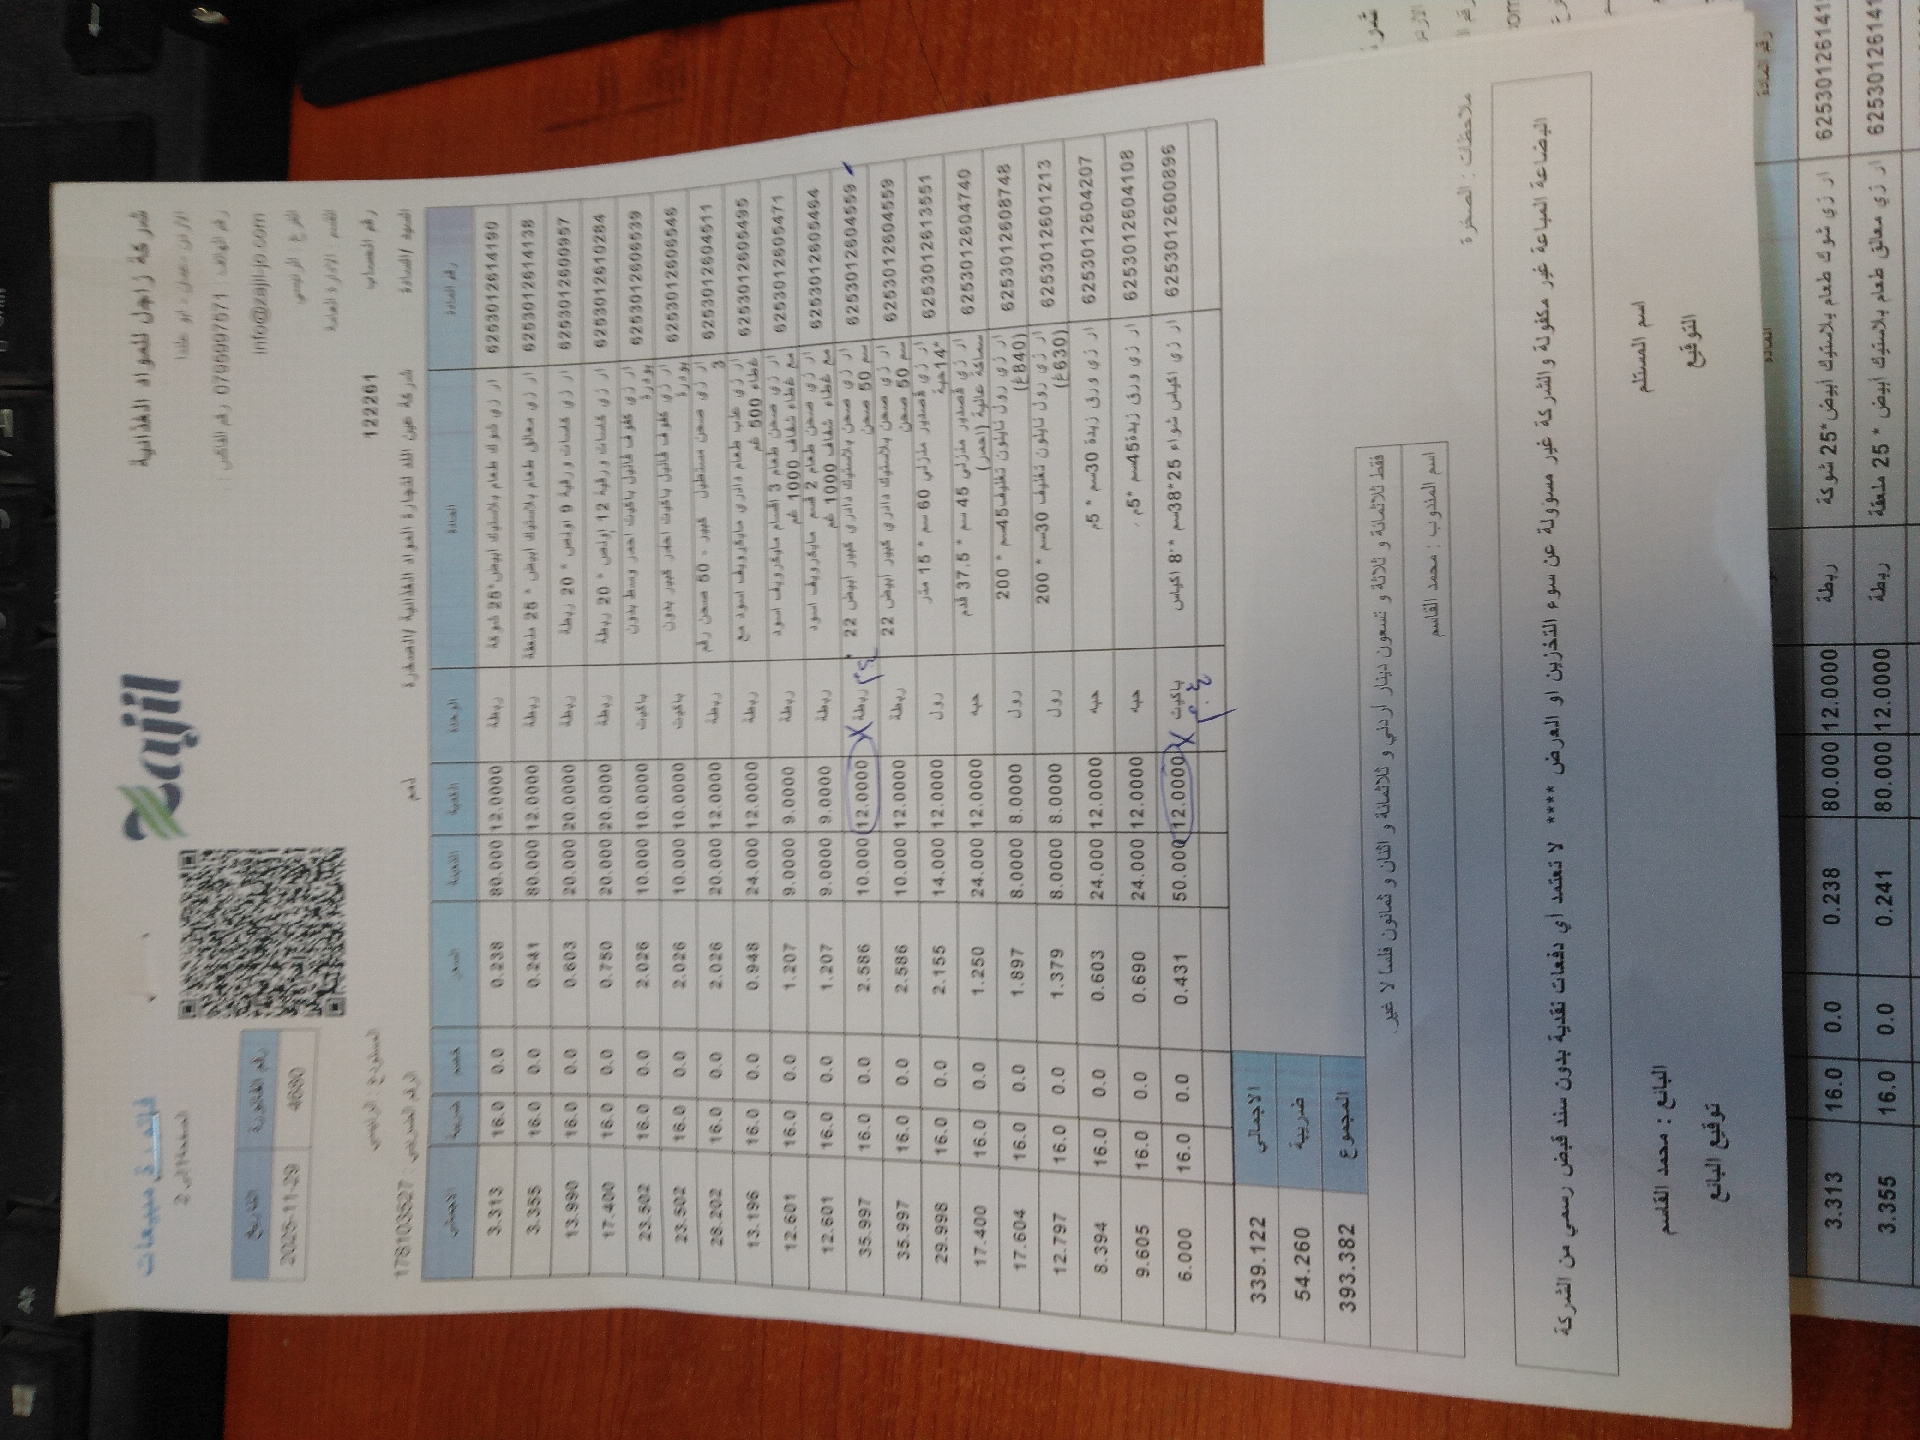 شركة زاجل للمواد الغذائية
الاردن - عمان - ابو علندا
رقم الهاتف : 0796997571 رقم الفاكس :
info@zajil-jo.com
الفرع : الرئيسي
القسم : الادارة العامة
Zajil
فاتورة مبيعات
الصفحة 1 الى 2
التاريخ رقم الفاتورة
2025-11-29 4680
المستودع : الرئيسي
رقم الحساب 122261
السيد / السادة شركة عين اللد لتجارة المواد الغذائية /الصخرة
ذمم
الرقم الضريبي 178103527
رقم المادة المادة الوحدة الكمية التعبئة السعر خصم ضريبة الاجمالي
6253012614190 ار زي شوك طعام بلاستيك ابيض*25 شوكة ربطة 12.0000 80.000 0.238 0.0 16.0 3.313
6253012614138 ار زي معالق طعام بلاستيك ابيض * 25 ملعقة ربطة 12.0000 80.000 0.241 0.0 16.0 3.355
6253012600957 ار زي كاسات ورقية 9 اونص * 20 ربطة ربطة 20.0000 20.000 0.603 0.0 16.0 13.990
6253012610284 ار زي كاسات ورقية 12 اونص * 20 ربطة ربطة 20.0000 20.000 0.750 0.0 16.0 17.400
6253012606539 ار زي كفوف فاينيل باكيت احمر وسط بدون بودرة باكيت 10.0000 10.000 2.026 0.0 16.0 23.502
6253012606546 ار زي كفوف فاينيل باكيت احمر كبير بدون بودرة باكيت 10.0000 10.000 2.026 0.0 16.0 23.502
6253012604511 ار زي صحن مستطيل كبير - 50 صحن رقم 3 ربطة 12.0000 20.000 2.026 0.0 16.0 28.202
6253012605495 ار زي علب طعام دائري مايكرويف اسود مع غطاء 500 غم ربطة 12.0000 24.000 0.948 0.0 16.0 13.196
6253012605471 ار زي صحن طعام 3 اقسام مايكرويف اسود مع غطاء شفاف 1000 غم ربطة 9.0000 9.0000 1.207 0.0 16.0 12.601
6253012605464 ار زي صحن طعام 2 قسم مايكرويف اسود مع غطاء شفاف 1000 غم ربطة 9.0000 9.0000 1.207 0.0 16.0 12.601
6253012604559 ار زي صحن بلاستيك دائري كبير ابيض 22 سم 50 صحن ربطة 12.0000 10.000 2.586 0.0 16.0 35.997
6253012604559 ار زي صحن بلاستيك دائري كبير ابيض 22 سم 50 صحن ربطة 12.0000 10.000 2.586 0.0 16.0 35.997
6253012613551 ار زي قصدير منزلي 60 سم * 15 متر *14حبة رول 12.0000 14.000 2.155 0.0 16.0 29.998
6253012604740 ار زي قصدير منزلي 45 سم * 37.5 قدم سماكة عالية (احمر) حبه 12.0000 24.000 1.250 0.0 16.0 17.400
6253012608748 ار زي رول نايلون تغليف45سم * 200 (840غ) رول 8.0000 8.0000 1.897 0.0 16.0 17.604
6253012601213 ار زي رول نايلون تغليف 30سم * 200 (630غ) رول 8.0000 8.0000 1.379 0.0 16.0 12.797
6253012604207 ار زي ورق زبدة 30سم *5م حبه 12.0000 24.000 0.603 0.0 16.0 8.394
6253012604108 ار زي ورق زبدة45سم *5م حبه 12.0000 24.000 0.690 0.0 16.0 9.605
6253012600896 ار زي اكياس شواء 25*38سم *8 اكياس باكيت 12.0000 50.000 0.431 0.0 16.0 6.000
الاجمالي 339.122
ضريبة 54.260
المجموع 393.382
فقط ثلاثمائة و ثلاثة و تسعون دينار اردني و ثلاثمائة و اثنان و ثمانون فلسا لا غير.
اسم المندوب : محمد القاسم
ملاحظات : الصخرة
البضاعة المباعة غير مكفولة و الشركة غير مسؤولة عن سوء التخزين او العرض **** لا تعتمد اي دفعات نقدية بدون سند قبض رسمي من الشركة
اسم المستلم
البائع : محمد القاسم
التوقيع
توقيع البائع
رقم المادة
المادة
ار زي شوك طعام بلاستيك ابيض*25 شوكة ربطة 12.0000 80.000 0.238 0.0 16.0 3.313
ار زي معالق طعام بلاستيك ابيض * 25 ملعقة ربطة 12.0000 80.000 0.241 0.0 16.0 3.355